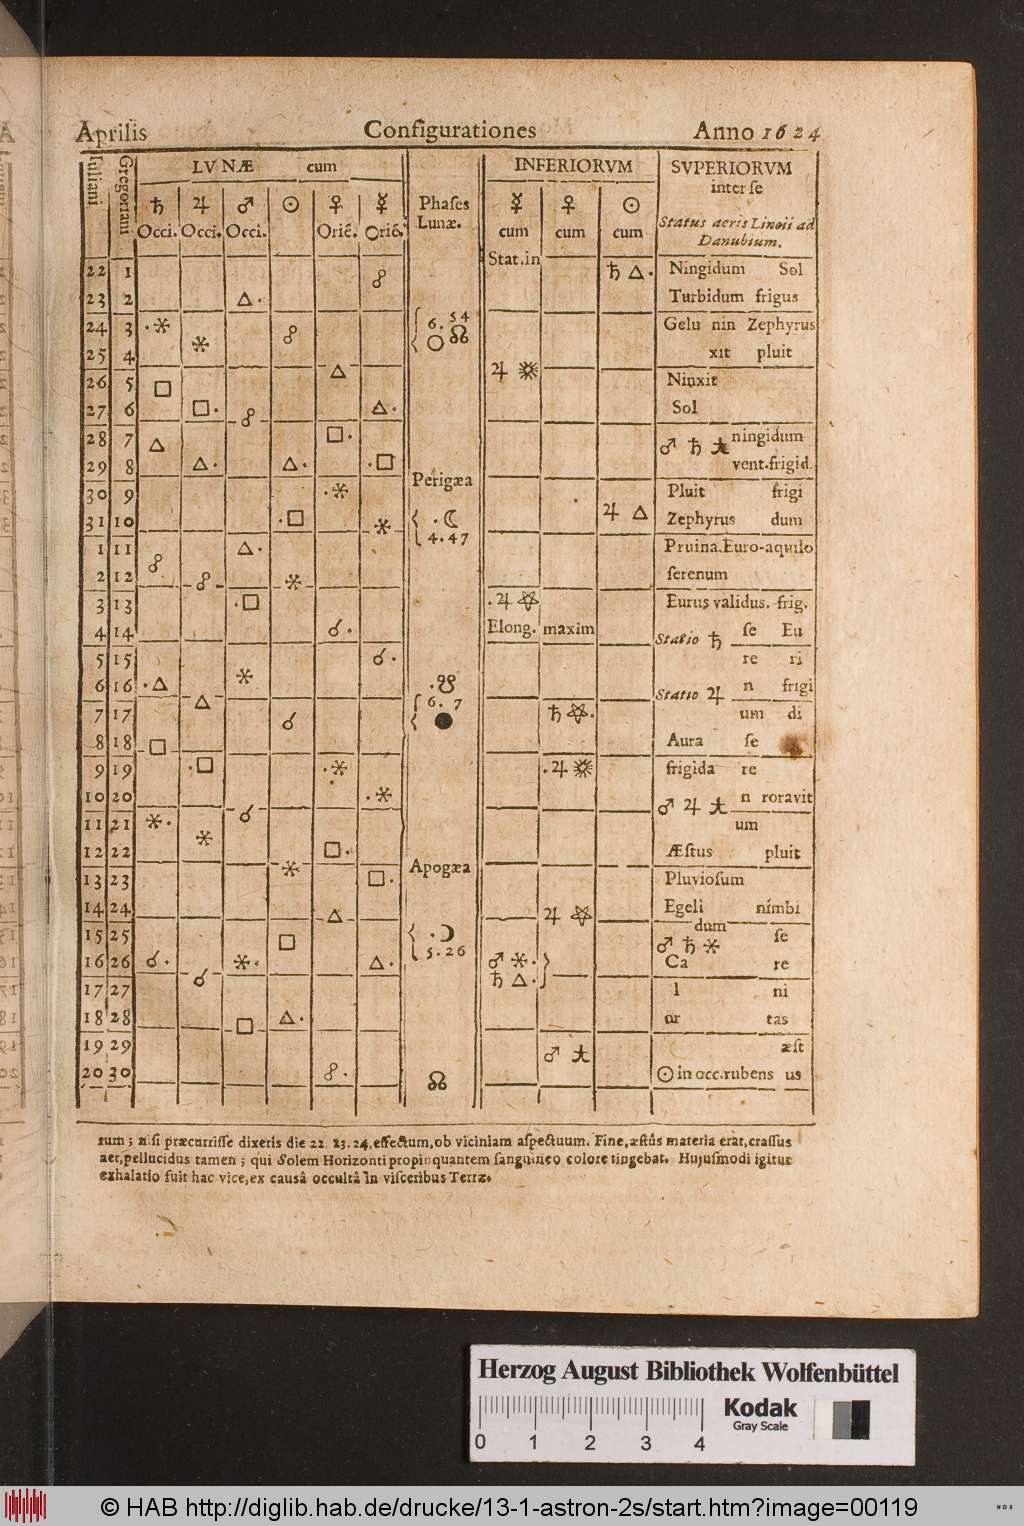 Aprilis Configurationes Anno 1624
Iuliani Gregoriani LVNÆ cum Phaſes Lunæ. INFERIORVM SVPERIORVM
inter ſe
♄ ♃ ♂ ☉ ♀ ☿ ☿ ♀ ☉
Occi. Occi. Occi. Orie͂. Orie͂. cum cum cum Status aeris Lincii ad
Danubium.
Stat. in
22 1 ☍ ♄ △. Ningidum Sol
23 2 △. Turbidum frigus
24 3 .⚹ ☍ 6. 54 ○ ☊ Gelu nin Zephyrus
25 4 ⚹ xit pluit
26 5 □ △ ♃ Ninxit
27 6 □. ☍ △. Sol
28 7 △ □. ♂ ♄ ningidum
29 8 △. △. .□ Perigæa vent.frigid.
30 9 .⚹ Pluit frigi
31 10 .□ ⚹ .☾ 4.47 ♃ △ Zephyrus dum
1 11 ☍ △. Pruina.Euro-aquilo
2 12 ☍ ⚹ ſerenum
3 13 .□ .♃ ⚝ Eurus validus. frig.
4 14 ☌. Elong. maxim Statio ♄ ſe Eu
5 15 ⚹ ☌. re ri
6 16 .△ △ .☋ Statio ♃ n frigi
7 17 ☌ 6. 7 ● ♄ ⚝. um di
8 18 □ Aura ſe
9 19 .□ .⚹ .♃ frigida re
10 20 ☌ .⚹ ♂ ♃ n roravit
11 21 ⚹. ⚹ um
12 22 □. Æſtus pluit
13 23 ⚹ □. Apogæa Pluvioſum
14 24 △ ♃ ⚝ Egeli nimbi
dum
15 25 □ .☽ 5.26 ♂ ♄ ⚹ ſe
16 26 ☌. ⚹. △. ♂ ⚹. Ca re
17 27 ☌ ♄ △. l ni
18 28 □ △. or tas
19 29 ♂ æſt
20 30 ☍. ☊ ☉ in occ.rubens us
rum; niſi præcurriſſe dixeris die 22. 23. 24, effectum, ob viciniam aſpectuum. Fine, æſtûs materia erat, craſſus
aer, pellucidus tamen; qui Solem Horizonti propinquantem ſanguineo colore tingebat. Hujuſmodi igitur
exhalatio fuit hac vice, ex causâ occultâ in viſceribus Terræ.
Herzog August Bibliothek Wolfenbüttel
Kodak
Gray Scale
0 1 2 3 4
© HAB http://diglib.hab.de/drucke/13-1-astron-2s/start.htm?image=00119